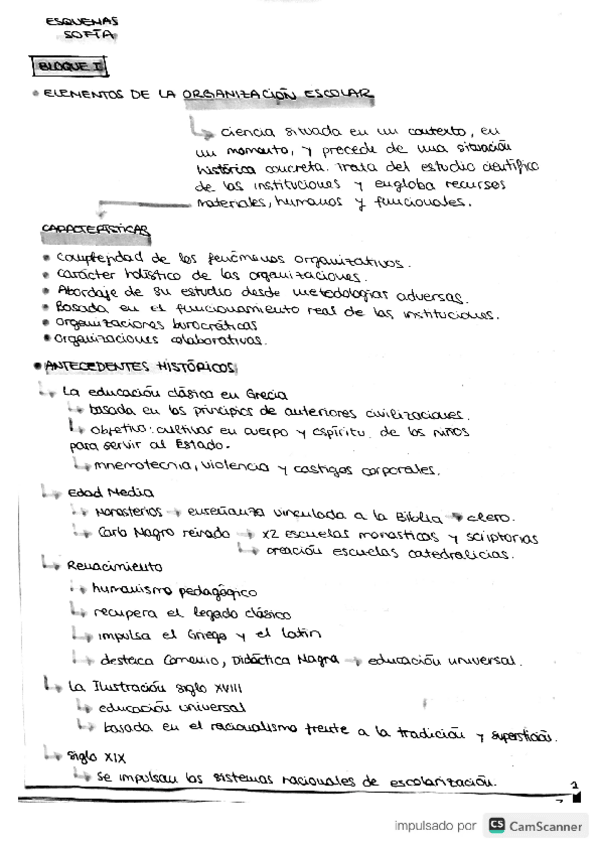 ESQUEMAS
SOFÍA
BLOQUE I
• ELEMENTOS DE LA ORGANIZACIÓN ESCOLAR
↳ ciencia situada en un contexto, en
un momento, y precede de una situación
histórica concreta. Trata del estudio científico
de las instituciones y engloba recursos
materiales, humanos y funcionales.
CARACTERÍSTICAS
• Complejidad de los fenómenos organizativos.
• Carácter holístico de las organizaciones.
• Abordaje de su estudio desde metodologías adversas.
• Basada en el funcionamiento real de las instituciones.
• Organizaciones burocráticas
• Organizaciones colaborativas.
• ANTECEDENTES HISTÓRICOS
↳ La educación clásica en Grecia
↳ basada en los principios de anteriores civilizaciones.
↳ objetivo: cultivar en cuerpo y espíritu de los niños
para servir al Estado.
↳ mnemotecnia, violencia y castigos corporales.
↳ Edad Media
↳ Monasterios → enseñanza vinculada a la Biblia → clero.
↳ Carlo Magno reinado → x2 escuelas monásticas y scriptorias
↳ creación escuelas catedralicias.
↳ Renacimiento
↳ humanismo pedagógico
↳ recupera el legado clásico
↳ impulsa el Griego y el latín
↳ destaca Comenio, Didáctica Magna → educación universal.
↳ La Ilustración siglo XVIII
↳ educación universal
↳ basada en el racionalismo frente a la tradición y superstición.
↳ Siglo XIX
↳ Se impulsan los sistemas nacionales de escolarización.
impulsado por CS CamScanner